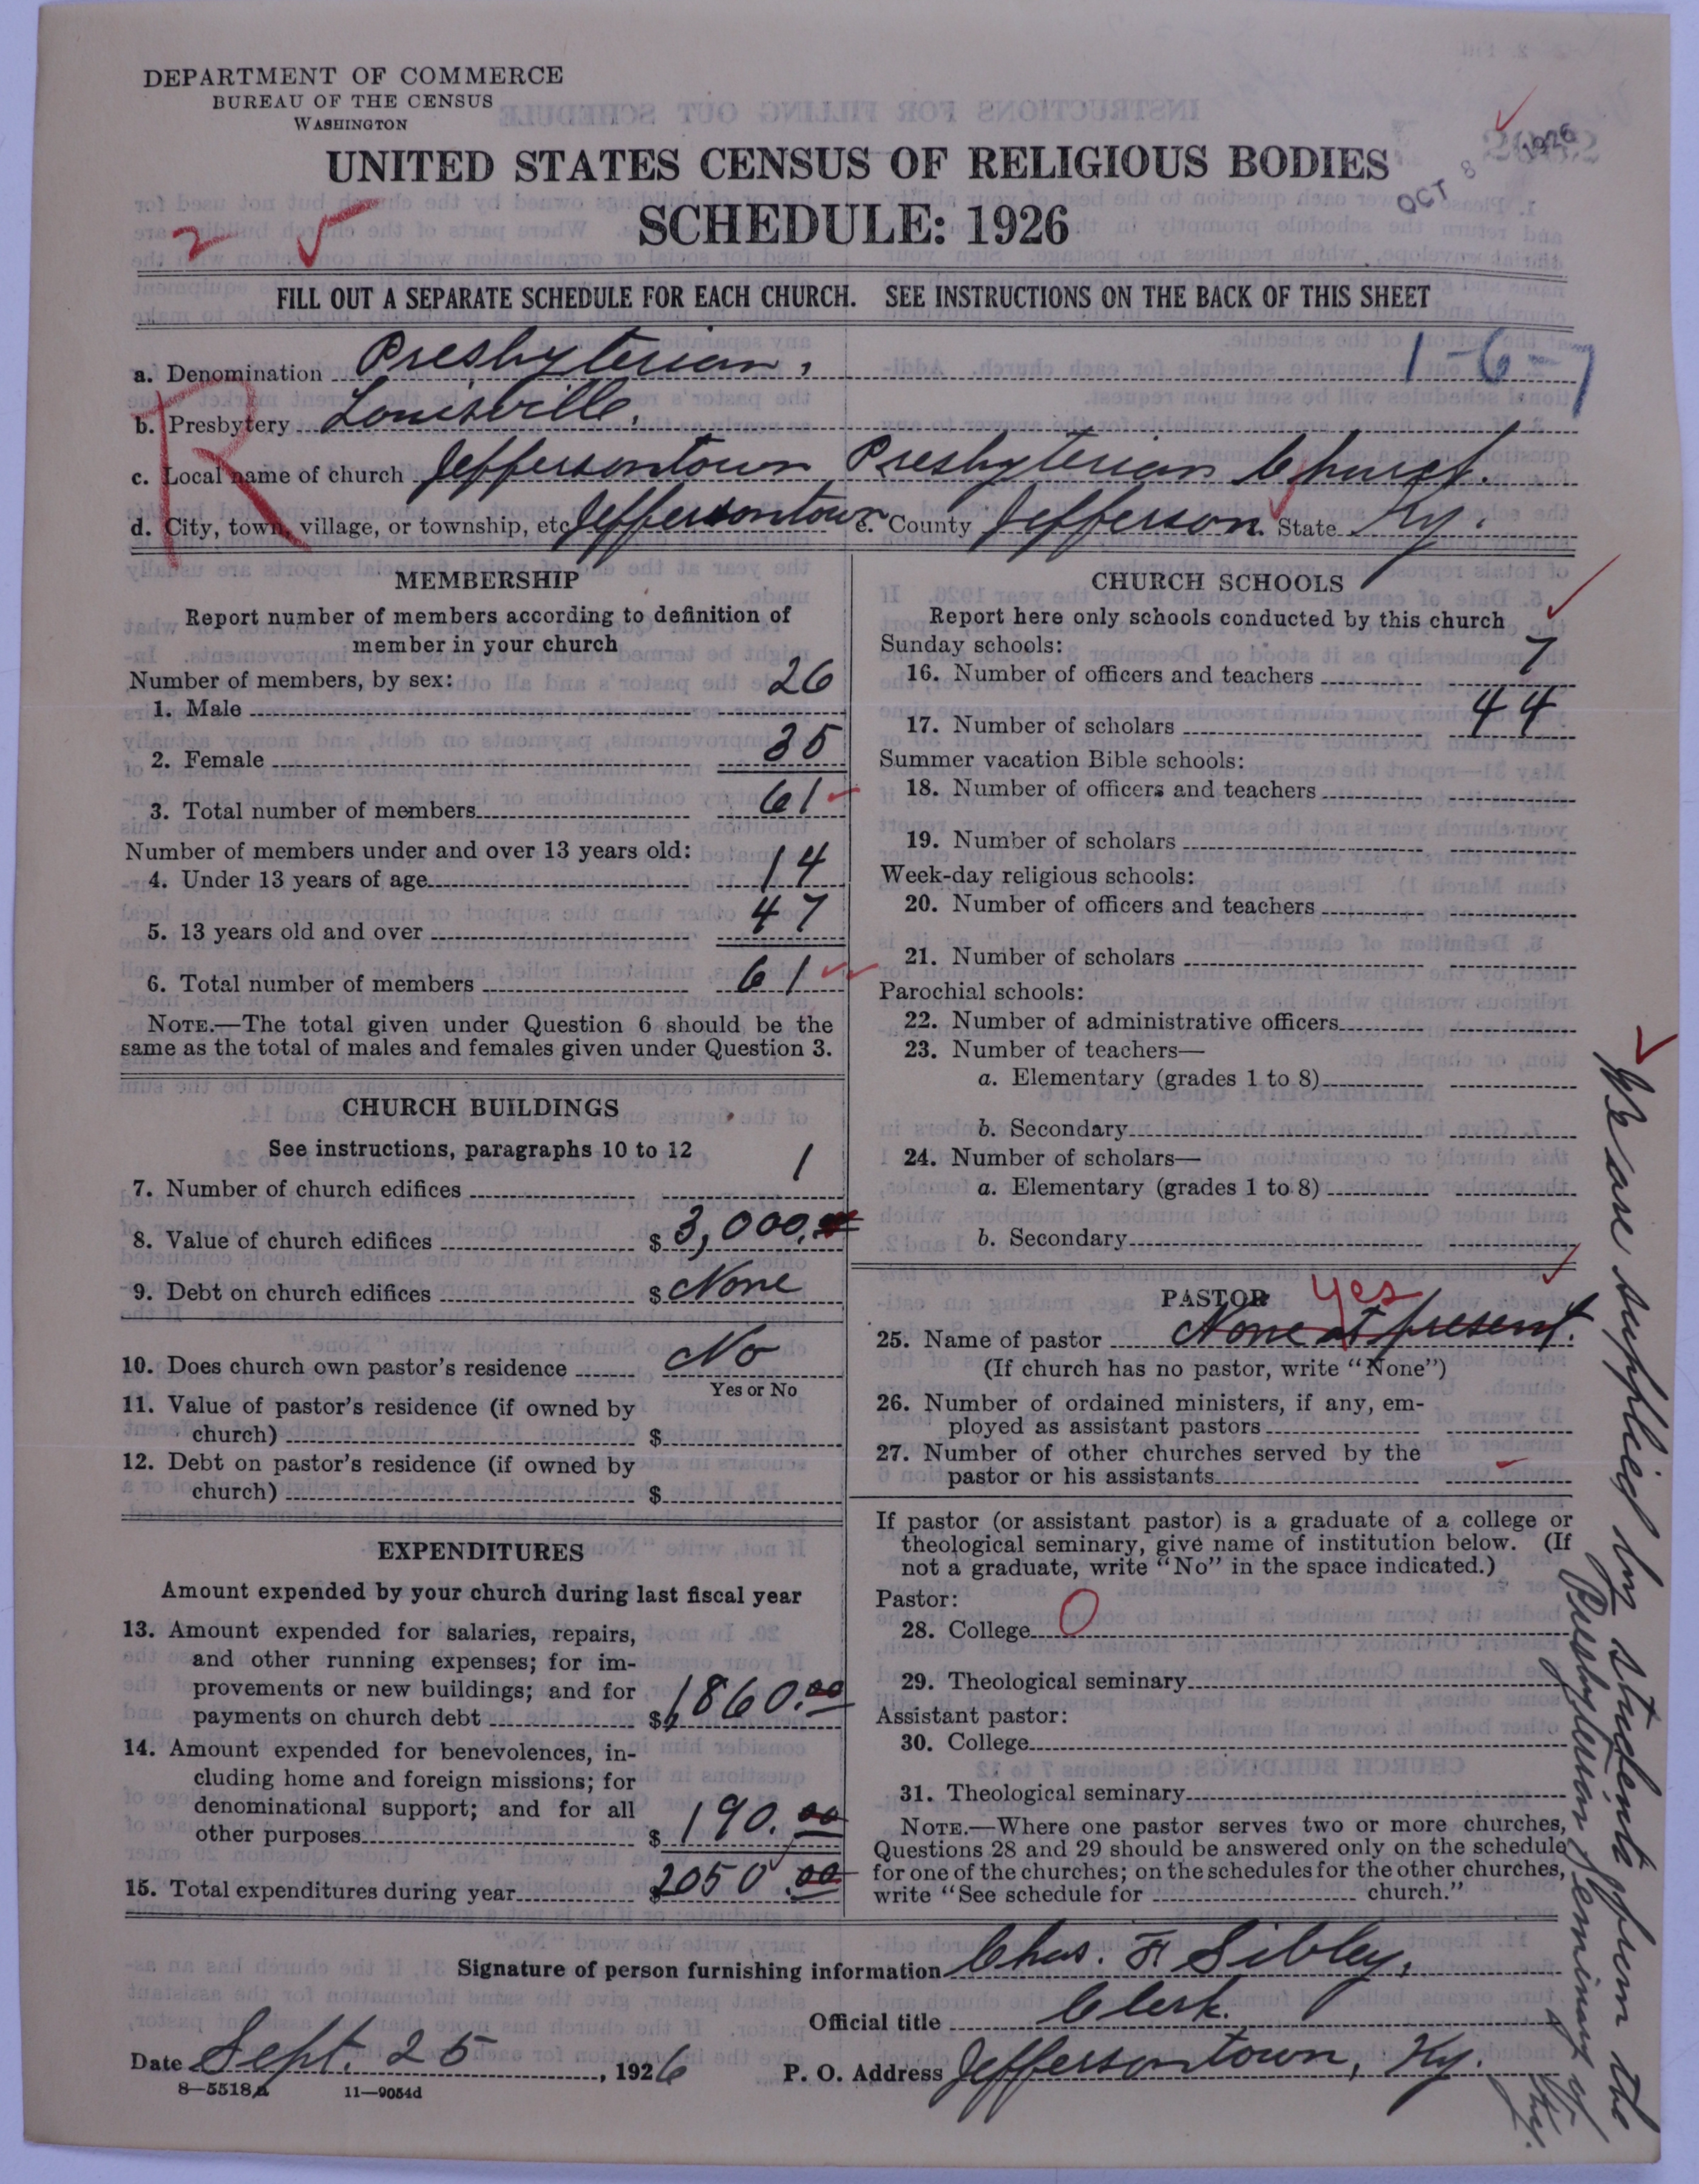 DEPARTMENT OF COMMERCE
BUREAU OF THE CENSUS
WASHINGTON
UNITED STATES CENSUS OF RELIGIOUS BODIES
OCT 8 1926
SCHEDULE: 1926
2
FILL OUT A SEPARATE SCHEDULE FOR EACH CHURCH. SEE INSTRUCTIONS ON THE BACK OF THIS SHEET
a. Denomination Presbyterian, 1-6-7
b. Presbytery Louisville.
R
c. Local name of church Jeffersontown Presbyterian Church.
d. City, town, village, or township, etc Jeffersontown e. County Jefferson. State Ky.
MEMBERSHIP
Report number of members according to definition of
member in your church
Number of members, by sex:
1. Male 26
2. Female 35
3. Total number of members 61
Number of members under and over 13 years old:
4. Under 13 years of age 14
5. 13 years old and over 47
6. Total number of members 61
NOTE.—The total given under Question 6 should be the
same as the total of males and females given under Question 3.
CHURCH BUILDINGS
See instructions, paragraphs 10 to 12
7. Number of church edifices 1
8. Value of church edifices $ 3,000.00
9. Debt on church edifices $ None
10. Does church own pastor's residence No
Yes or No
11. Value of pastor's residence (if owned by
church) $
12. Debt on pastor's residence (if owned by
church) $
EXPENDITURES
Amount expended by your church during last fiscal year
13. Amount expended for salaries, repairs,
and other running expenses; for im-
provements or new buildings; and for
payments on church debt $ 1860.00
14. Amount expended for benevolences, in-
cluding home and foreign missions; for
denominational support; and for all
other purposes $ 190.00
15. Total expenditures during year $ 2050.00
CHURCH SCHOOLS
Report here only schools conducted by this church
Sunday schools:
16. Number of officers and teachers 7
17. Number of scholars 44
Summer vacation Bible schools:
18. Number of officers and teachers
19. Number of scholars
Week-day religious schools:
20. Number of officers and teachers
21. Number of scholars
Parochial schools:
22. Number of administrative officers
23. Number of teachers—
a. Elementary (grades 1 to 8)
b. Secondary
24. Number of scholars—
a. Elementary (grades 1 to 8)
b. Secondary
PASTOR yes
25. Name of pastor None at present.
(If church has no pastor, write "None")
26. Number of ordained ministers, if any, em-
ployed as assistant pastors
27. Number of other churches served by the
pastor or his assistants
If pastor (or assistant pastor) is a graduate of a college or
theological seminary, give name of institution below. (If
not a graduate, write "No" in the space indicated.)
Pastor:
28. College 0
29. Theological seminary
Assistant pastor:
30. College
31. Theological seminary
NOTE.—Where one pastor serves two or more churches,
Questions 28 and 29 should be answered only on the schedule
for one of the churches; on the schedules for the other churches,
write "See schedule for church."
We are supplied by students from the
Presbyterian Seminary of
Ky.
Signature of person furnishing information Chas. F. Sibley,
Official title Clerk.
Date Sept. 25, 1926 P. O. Address Jeffersontown, Ky.
8—5518a 11—9054d